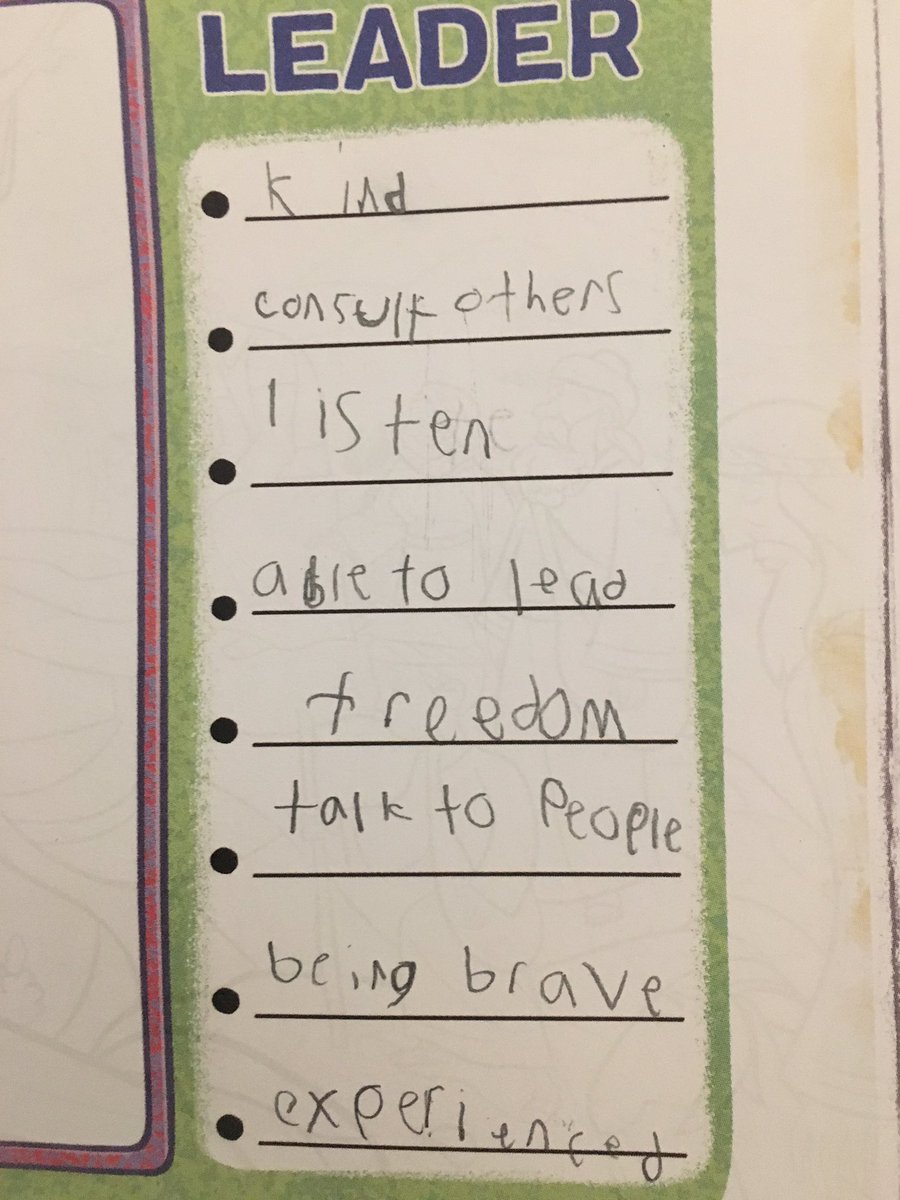 LEADER
kind
consult others
listen
able to lead
freedom
talk to people
being brave
experienced